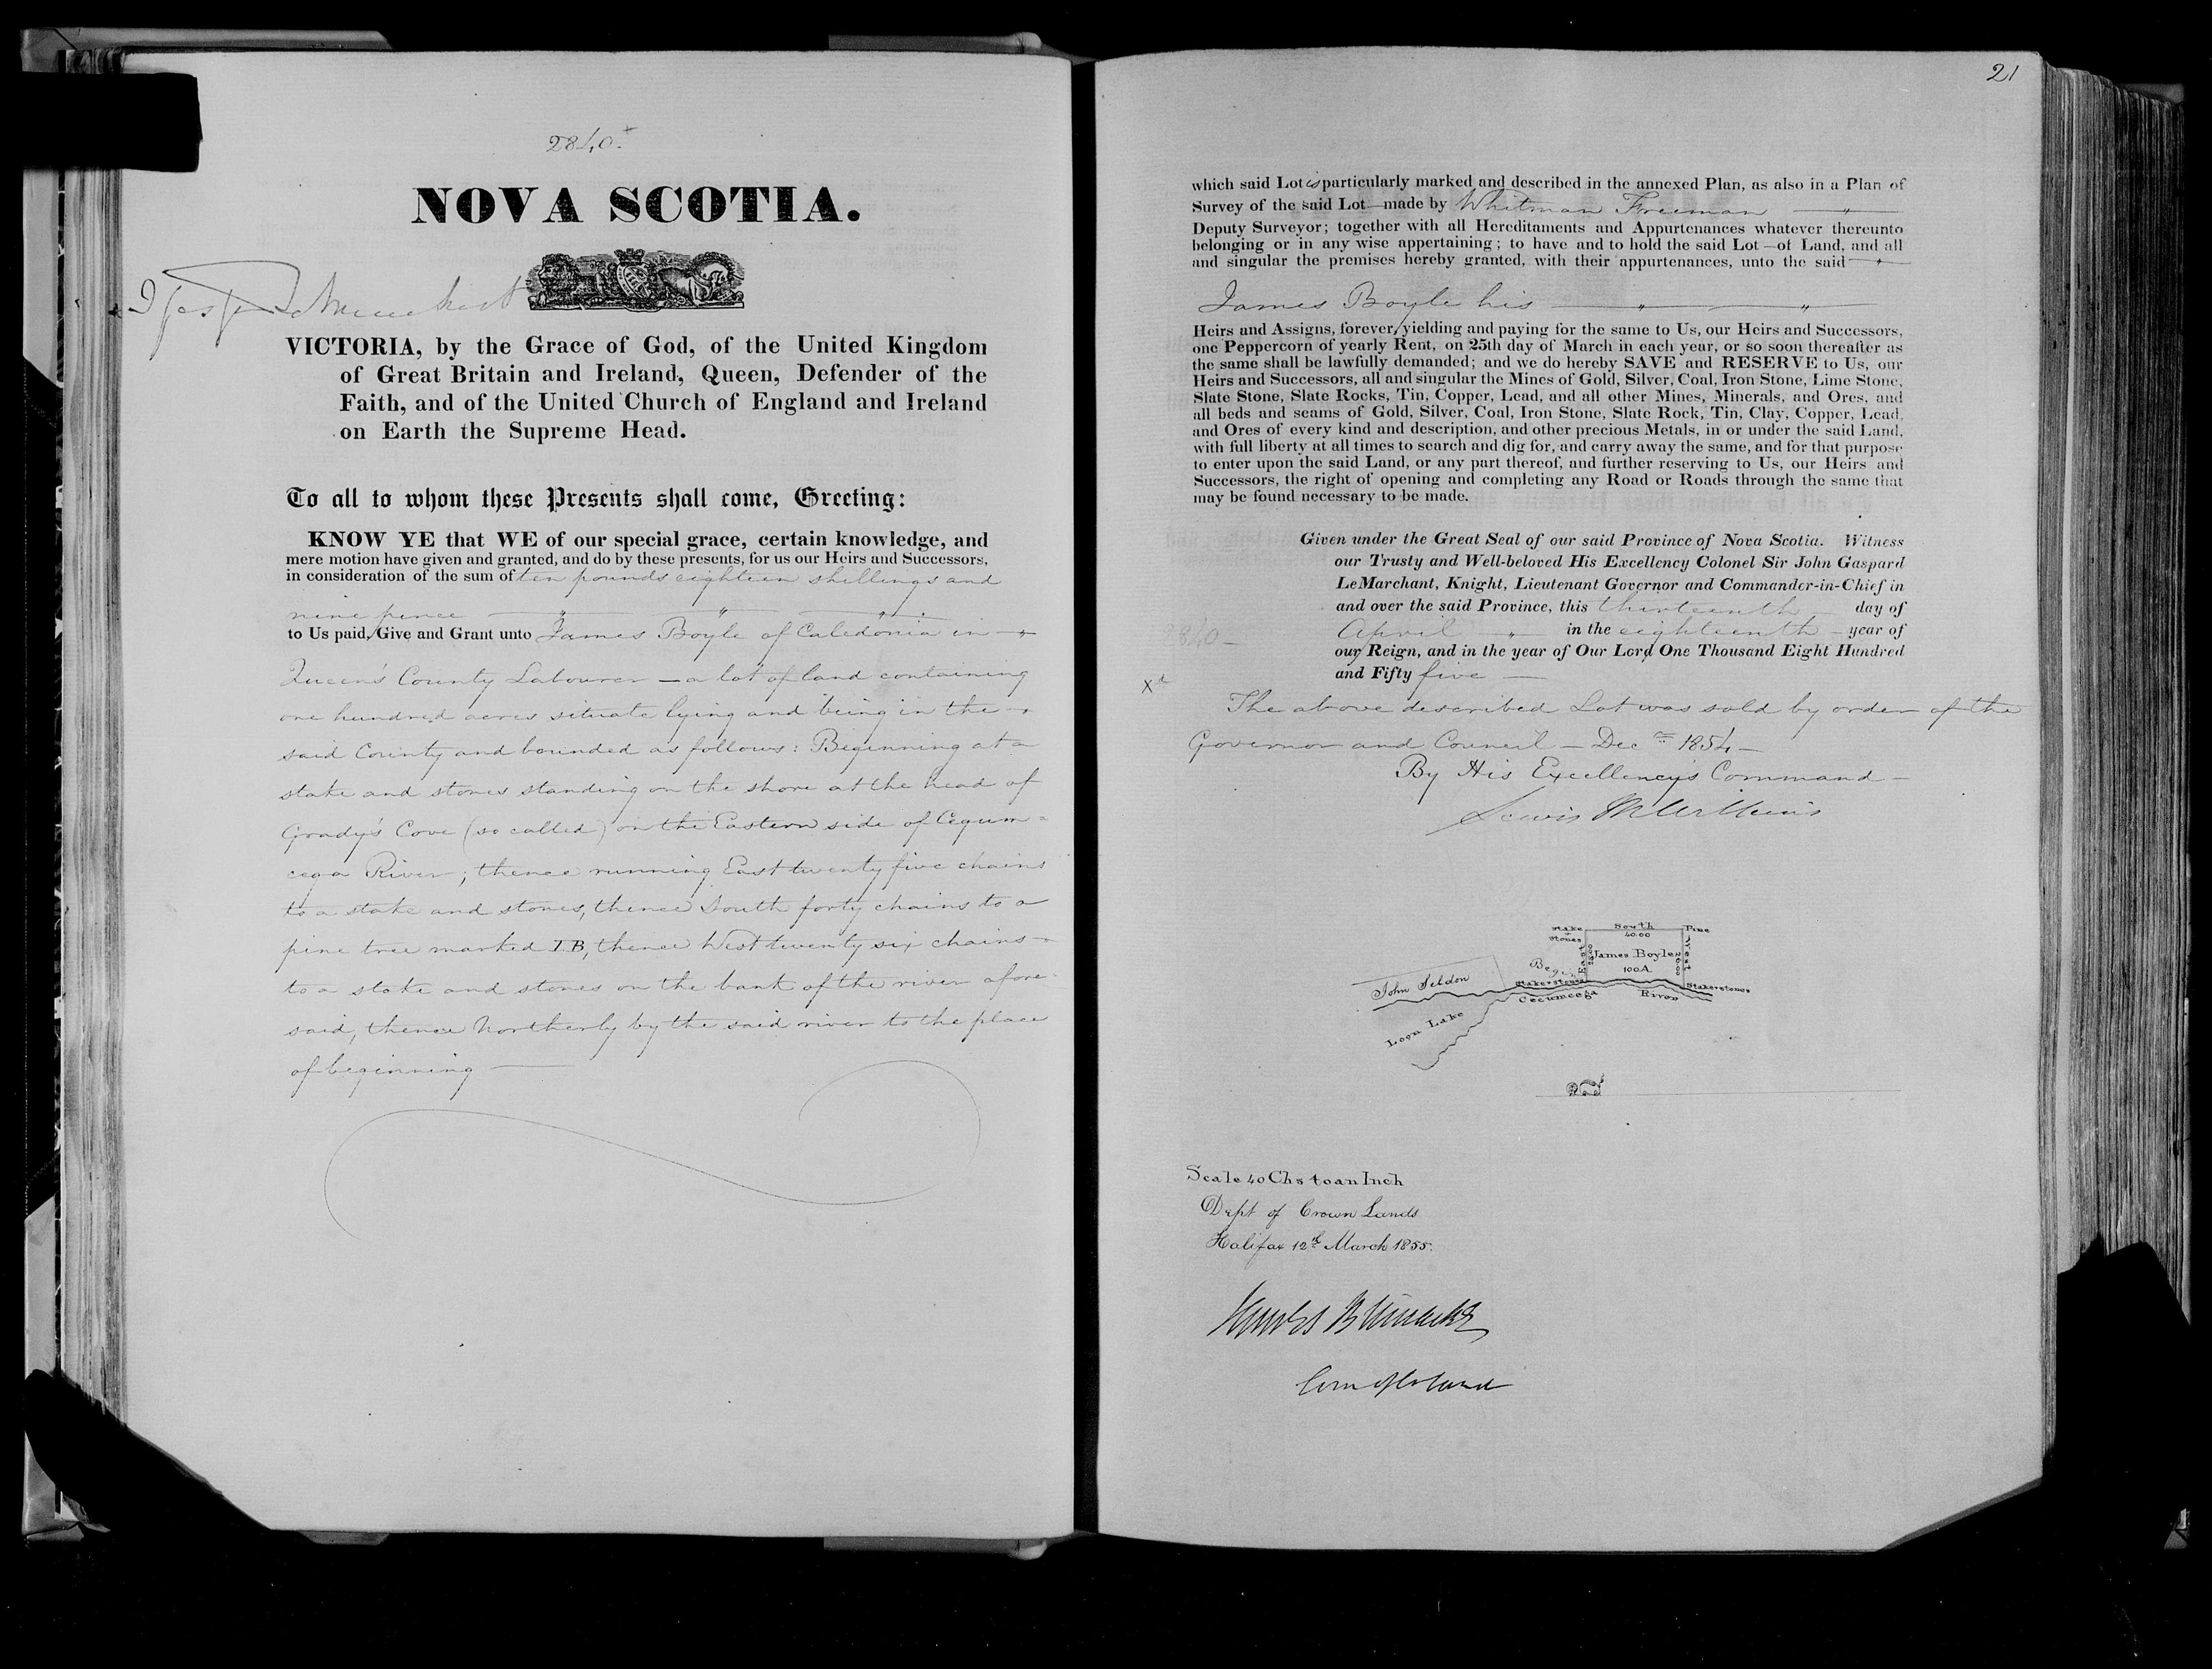 2840x
NOVA SCOTIA.
VICTORIA, by the Grace of God, of the United Kingdom
of Great Britain and Ireland, Queen, Defender of the
Faith, and of the United Church of England and Ireland
on Earth the Supreme Head.
To all to whom these Presents shall come, Greeting:
KNOW YE that WE of our special grace, certain knowledge, and
mere motion have given and granted, and do by these presents, for us our Heirs and Successors,
in consideration of the sum of ten pounds eighteen shillings and
nine pence
to Us paid, Give and Grant unto James Boyle of Caledonia in
Queen's County Labourer — a lot of land containing
one hundred acres situate lying and being in the
said County and bounded as follows: Beginning at a
stake and stones standing on the shore at the head of
Grady's Cove (so called) on the Eastern side of Cegum=
cega River; thence running East twenty five chains
to a stake and stones, thence South forty chains to a
pine tree marked I.B, thence West twenty six chains
to a stake and stones on the bank of the river afore
said, thence Northerly by the said river to the place
of beginning —
21
which said Lot is particularly marked and described in the annexed Plan, as also in a Plan of
Survey of the said Lot — made by Whitman Freeman
Deputy Surveyor; together with all Hereditaments and Appurtenances whatever thereunto
belonging or in any wise appertaining; to have and to hold the said Lot — of Land, and all
and singular the premises hereby granted, with their appurtenances, unto the said
James Boyle his
Heirs and Assigns, forever, yielding and paying for the same to Us, our Heirs and Successors,
one Peppercorn of yearly Rent, on 25th day of March in each year, or so soon thereafter as
the same shall be lawfully demanded; and we do hereby SAVE and RESERVE to Us, our
Heirs and Successors, all and singular the Mines of Gold, Silver, Coal, Iron Stone, Lime Stone,
Slate Stone, Slate Rocks, Tin, Copper, Lead, and all other Mines, Minerals, and Ores, and
all beds and seams of Gold, Silver, Coal, Iron Stone, Slate Rock, Tin, Clay, Copper, Lead,
and Ores of every kind and description, and other precious Metals, in or under the said Land,
with full liberty at all times to search and dig for, and carry away the same, and for that purpose
to enter upon the said Land, or any part thereof, and further reserving to Us, our Heirs and
Successors, the right of opening and completing any Road or Roads through the same that
may be found necessary to be made.
Given under the Great Seal of our said Province of Nova Scotia. Witness
our Trusty and Well-beloved His Excellency Colonel Sir John Gaspard
LeMarchant, Knight, Lieutenant Governor and Commander-in-Chief in
and over the said Province, this thirteenth day of
2840 —
April in the eighteenth year of
our Reign, and in the year of Our Lord One Thousand Eight Hundred
and Fifty five —
The above described Lot was sold by order of the
Governor and Council — Decr 1854 —
By His Excellency's Command —
Lewis M Wilkins
Stake Stones South 40.00 Pine
East 25.00 James Boyle 100 A. West 26.00
John Seldon Begin Stake & stones Stake & stones
Cecumcega River
Loon Lake
Scale 40 Chs to an Inch
Dept of Crown Lands
Halifax 12th March 1855.
James B Uniacke
Com of Cr Land